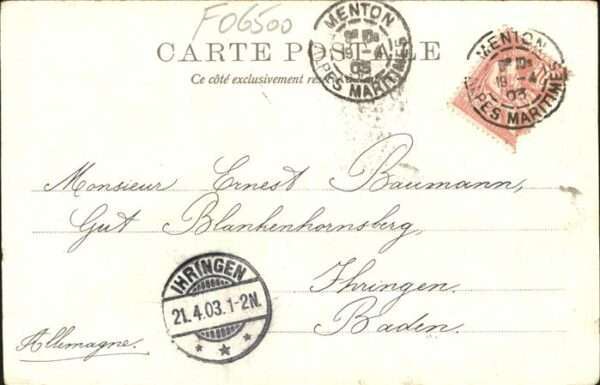 F06500
CARTE POSTALE
Ce côté exclusivement
MENTON
19 -4
03
ALPES MARITIMES
MENTON
19 -4
03
ALPES MARITIMES
Monsieur Ernest Baumann,
Gut Blankenhornsberg,
Ihringen.
Baden.
IHRINGEN
21.4.03.1-2N.
Allemagne.